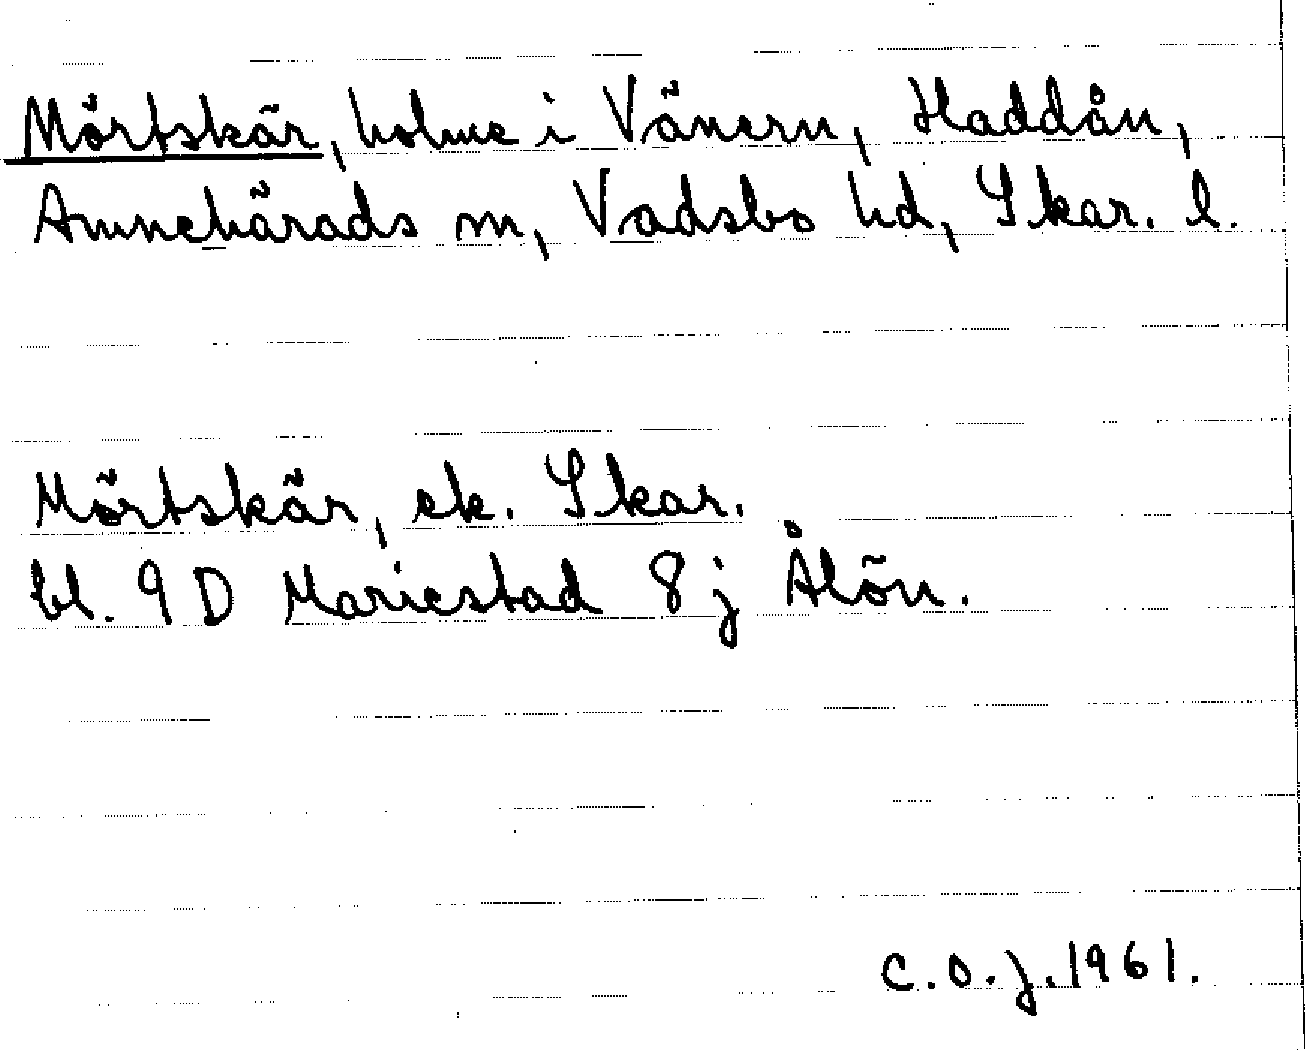 Mörtskär, holme i Vänern, Haddån,
Amnehärads sn, Vadsbo hd, Skar. l.
Mörtskär, ek. Skar.
bl. 9 D Mariestad 8 j Ålön.
C.O.J. 1961.